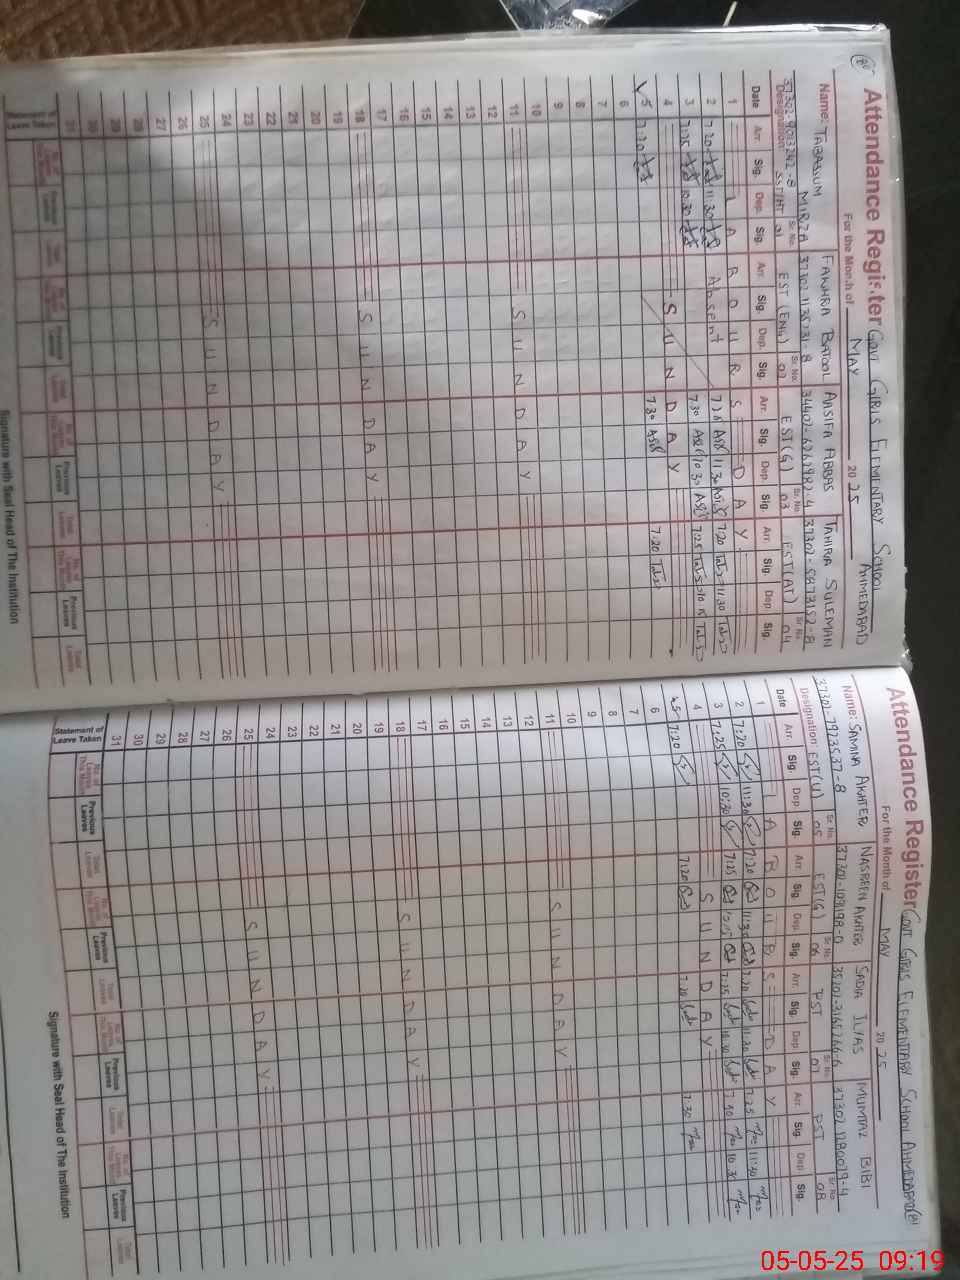 Attendance Register GOVT GIRLS ELEMENTARY SCHOOL AHMEDABAD
For the Month of MAY 2025
Name: TABASSUM MIRZA FAKHRA BATOOL AASIFA ABBAS TAHIRA SULEMAN
Designation: SST/HT Sr. No. 01 EST (ENG) Sr. No. 02 EST(G) Sr. No. 03 EST(AT) Sr. No. 04
Date Arr. Sig. Dep. Sig. Arr. Sig. Dep. Sig. Arr. Sig. Dep. Sig. Arr. Sig. Dep. Sig.
1 LABOURS DAY
2 7:20 11:30 Absent 11:30 7:20 11:30
3 7:25 10:30 7:30 10:30 7:25
4 SUNDAY
5 7:20 7:30 7:20
6
7
8
9
10
11 SUNDAY
12
13
14
15
16
17
18 SUNDAY
19
20
21
22
23
24
25 SUNDAY
26
27
28
29
30
31
Statement of Leave Taken No. of Leaves This Month Previous Leaves Total Leaves No. of Leaves This Month Previous Leaves Total Leaves No. of Leaves This Month Previous Leaves Total Leaves No. of Leaves This Month Previous Leaves Total Leaves
Signature with Seal Head of The Institution
Attendance Register GOVT GIRLS ELEMENTARY SCHOOL AHMEDABAD
For the Month of MAY 2025
Name: SAMINA AKHTER NASREEN AKHTER SADIA ILYAS MUMTAZ BIBI
Designation: EST(U) Sr. No. 05 EST(G) Sr. No. 06 PST Sr. No. 07 PST Sr. No. 08
Date Arr. Sig. Dep. Sig. Arr. Sig. Dep. Sig. Arr. Sig. Dep. Sig. Arr. Sig. Dep. Sig.
1 LABOURS DAY
2 7:20 11:30 7:20 11:30 7:20 11:30 7:25 11:30
3 7:25 10:30 7:25 7:25 10:30 7:30 10:30
4 SUNDAY
5 7:20 7:20 7:20 7:30
6
7
8
9
10
11 SUNDAY
12
13
14
15
16
17
18 SUNDAY
19
20
21
22
23
24
25 SUNDAY
26
27
28
29
30
31
Statement of Leave Taken No. of Leaves This Month Previous Leaves Total Leaves No. of Leaves This Month Previous Leaves Total Leaves No. of Leaves This Month Previous Leaves Total Leaves No. of Leaves This Month Previous Leaves Total Leaves
Signature with Seal Head of The Institution
05-05-25 09:19